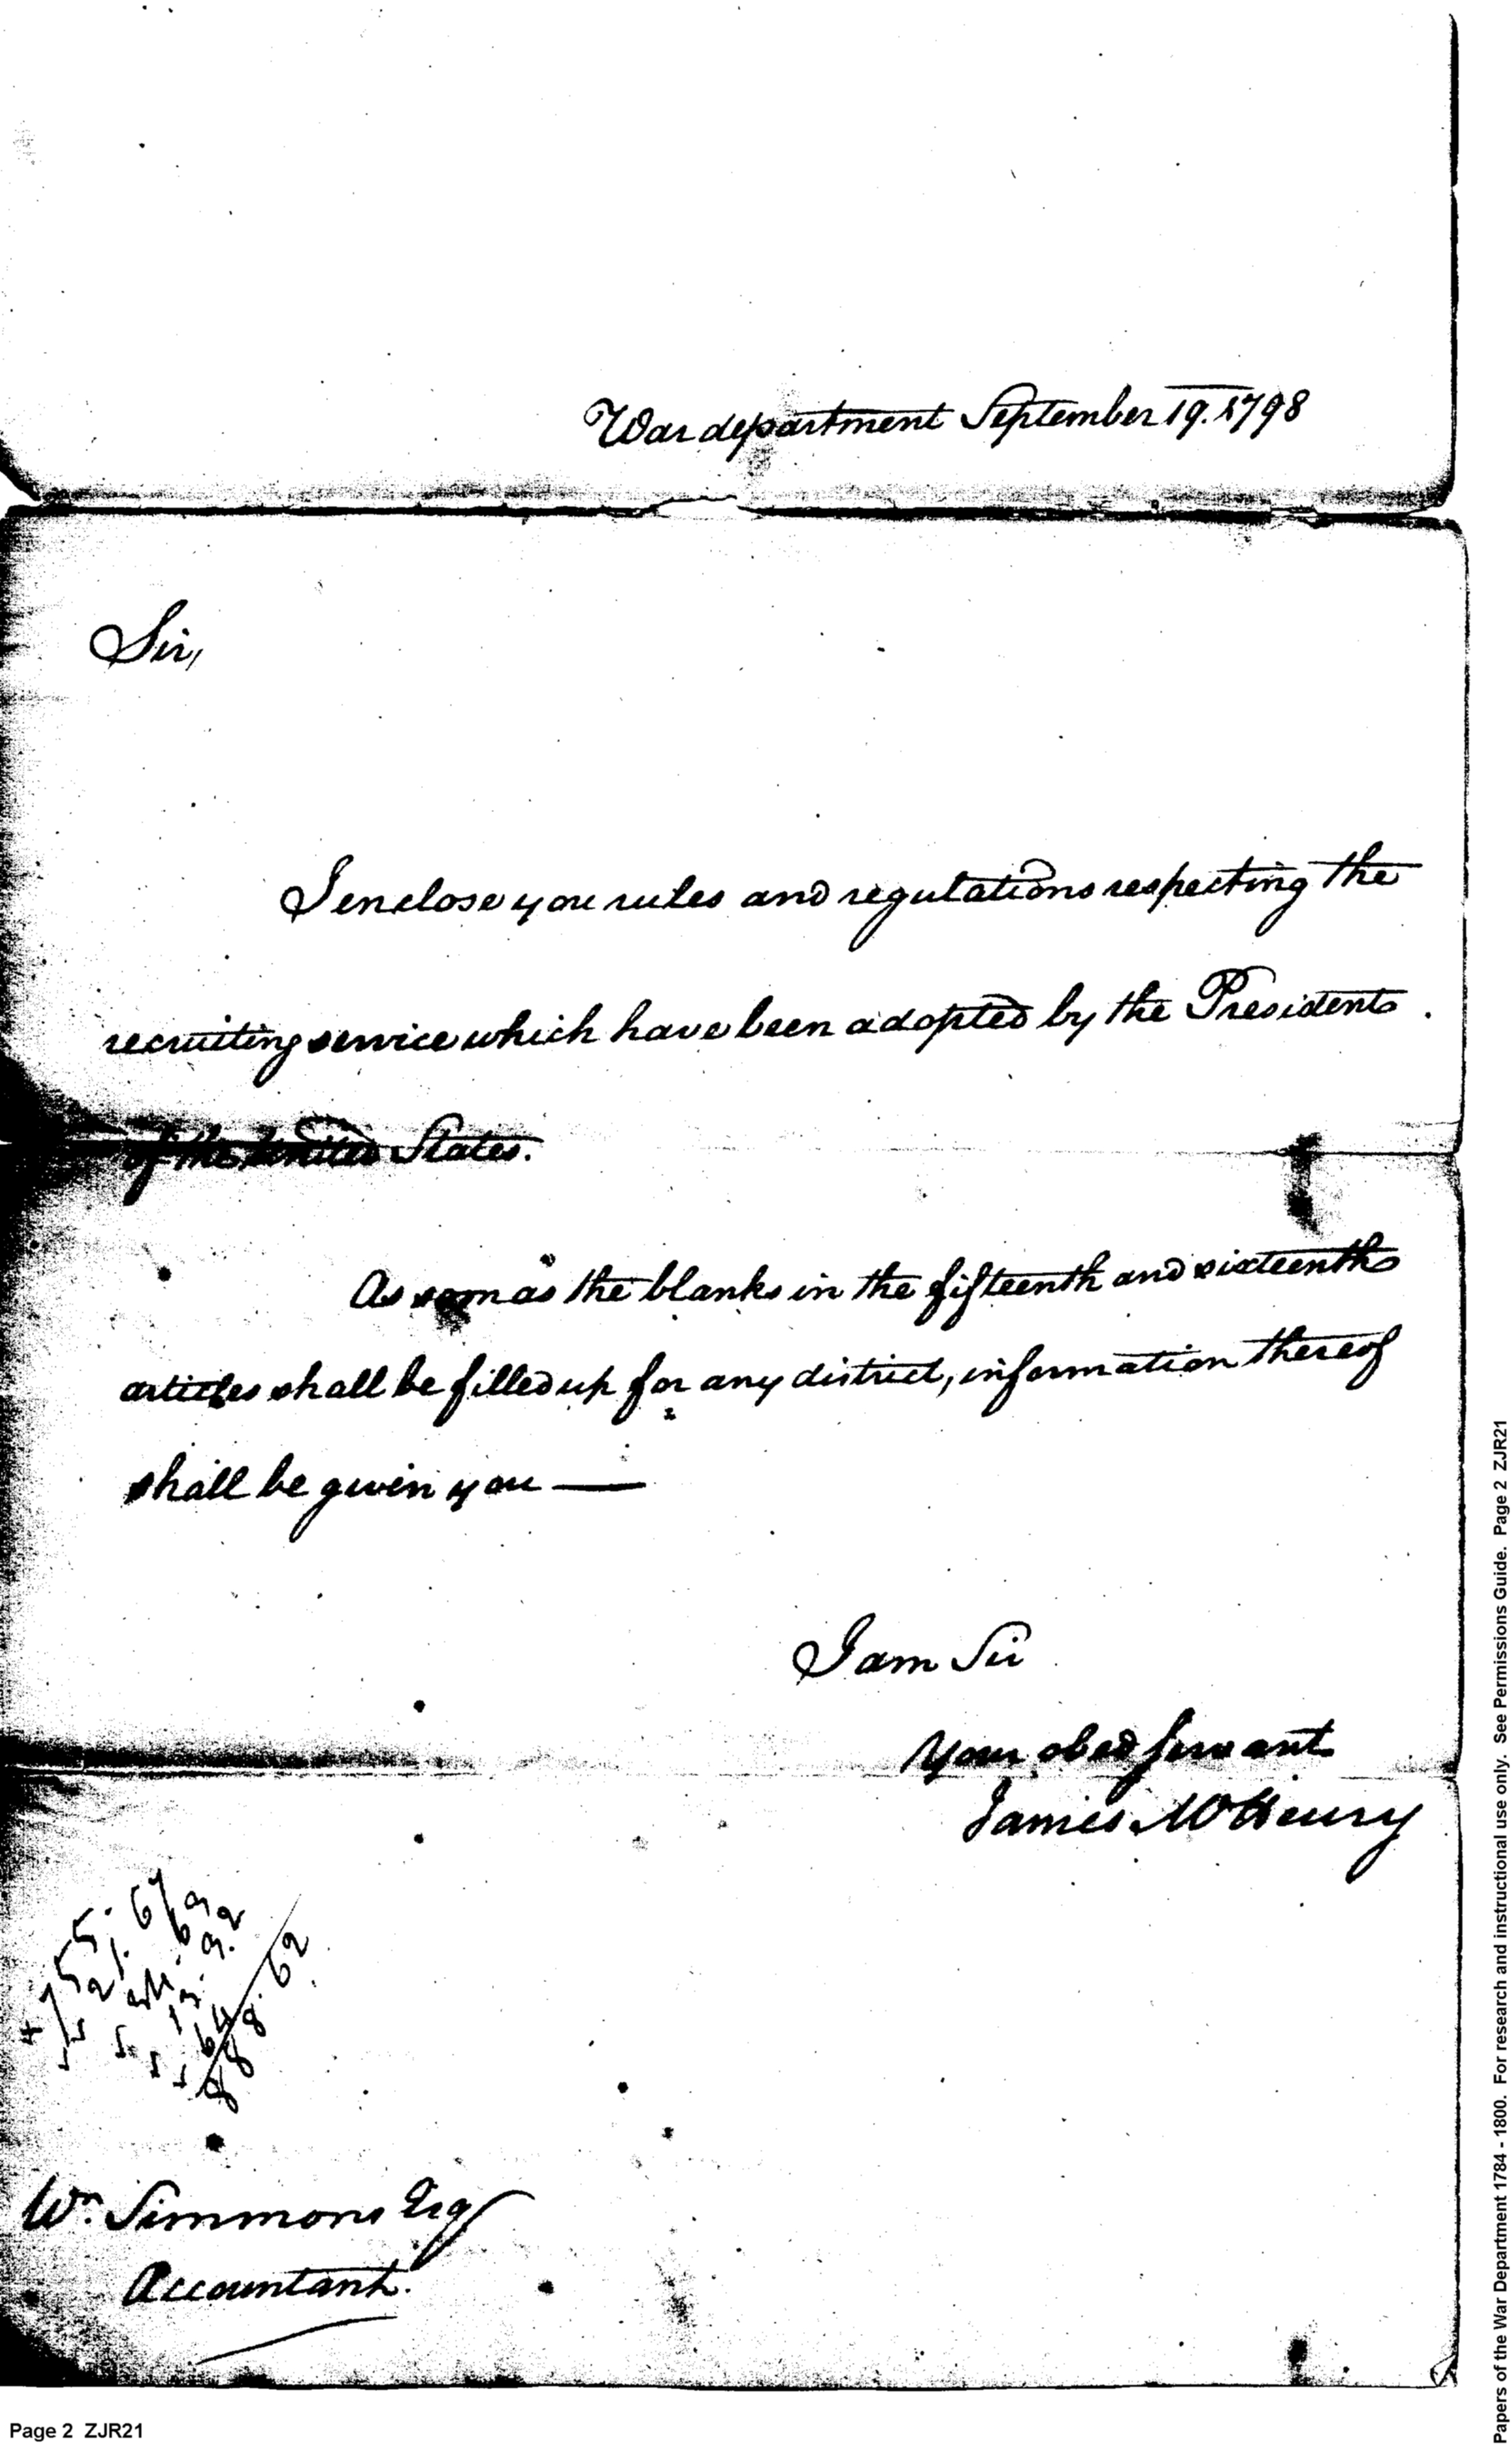 War department September 19. 1798
Sir,
I enclose you rules and regulations respecting the
recruiting service which have been adopted by the President
of the United States.
As soon as the blanks in the fifteenth and sixteenth
articles shall be filled up for any district, information thereof
shall be given you —
I am Sir
Your obed servant
James McHenry
88.62
Wm. Simmons Esq
Accountant.
Page 2 ZJR21
Papers of the War Department 1784 - 1800. For research and instructional use only. See Permissions Guide. Page 2 ZJR21